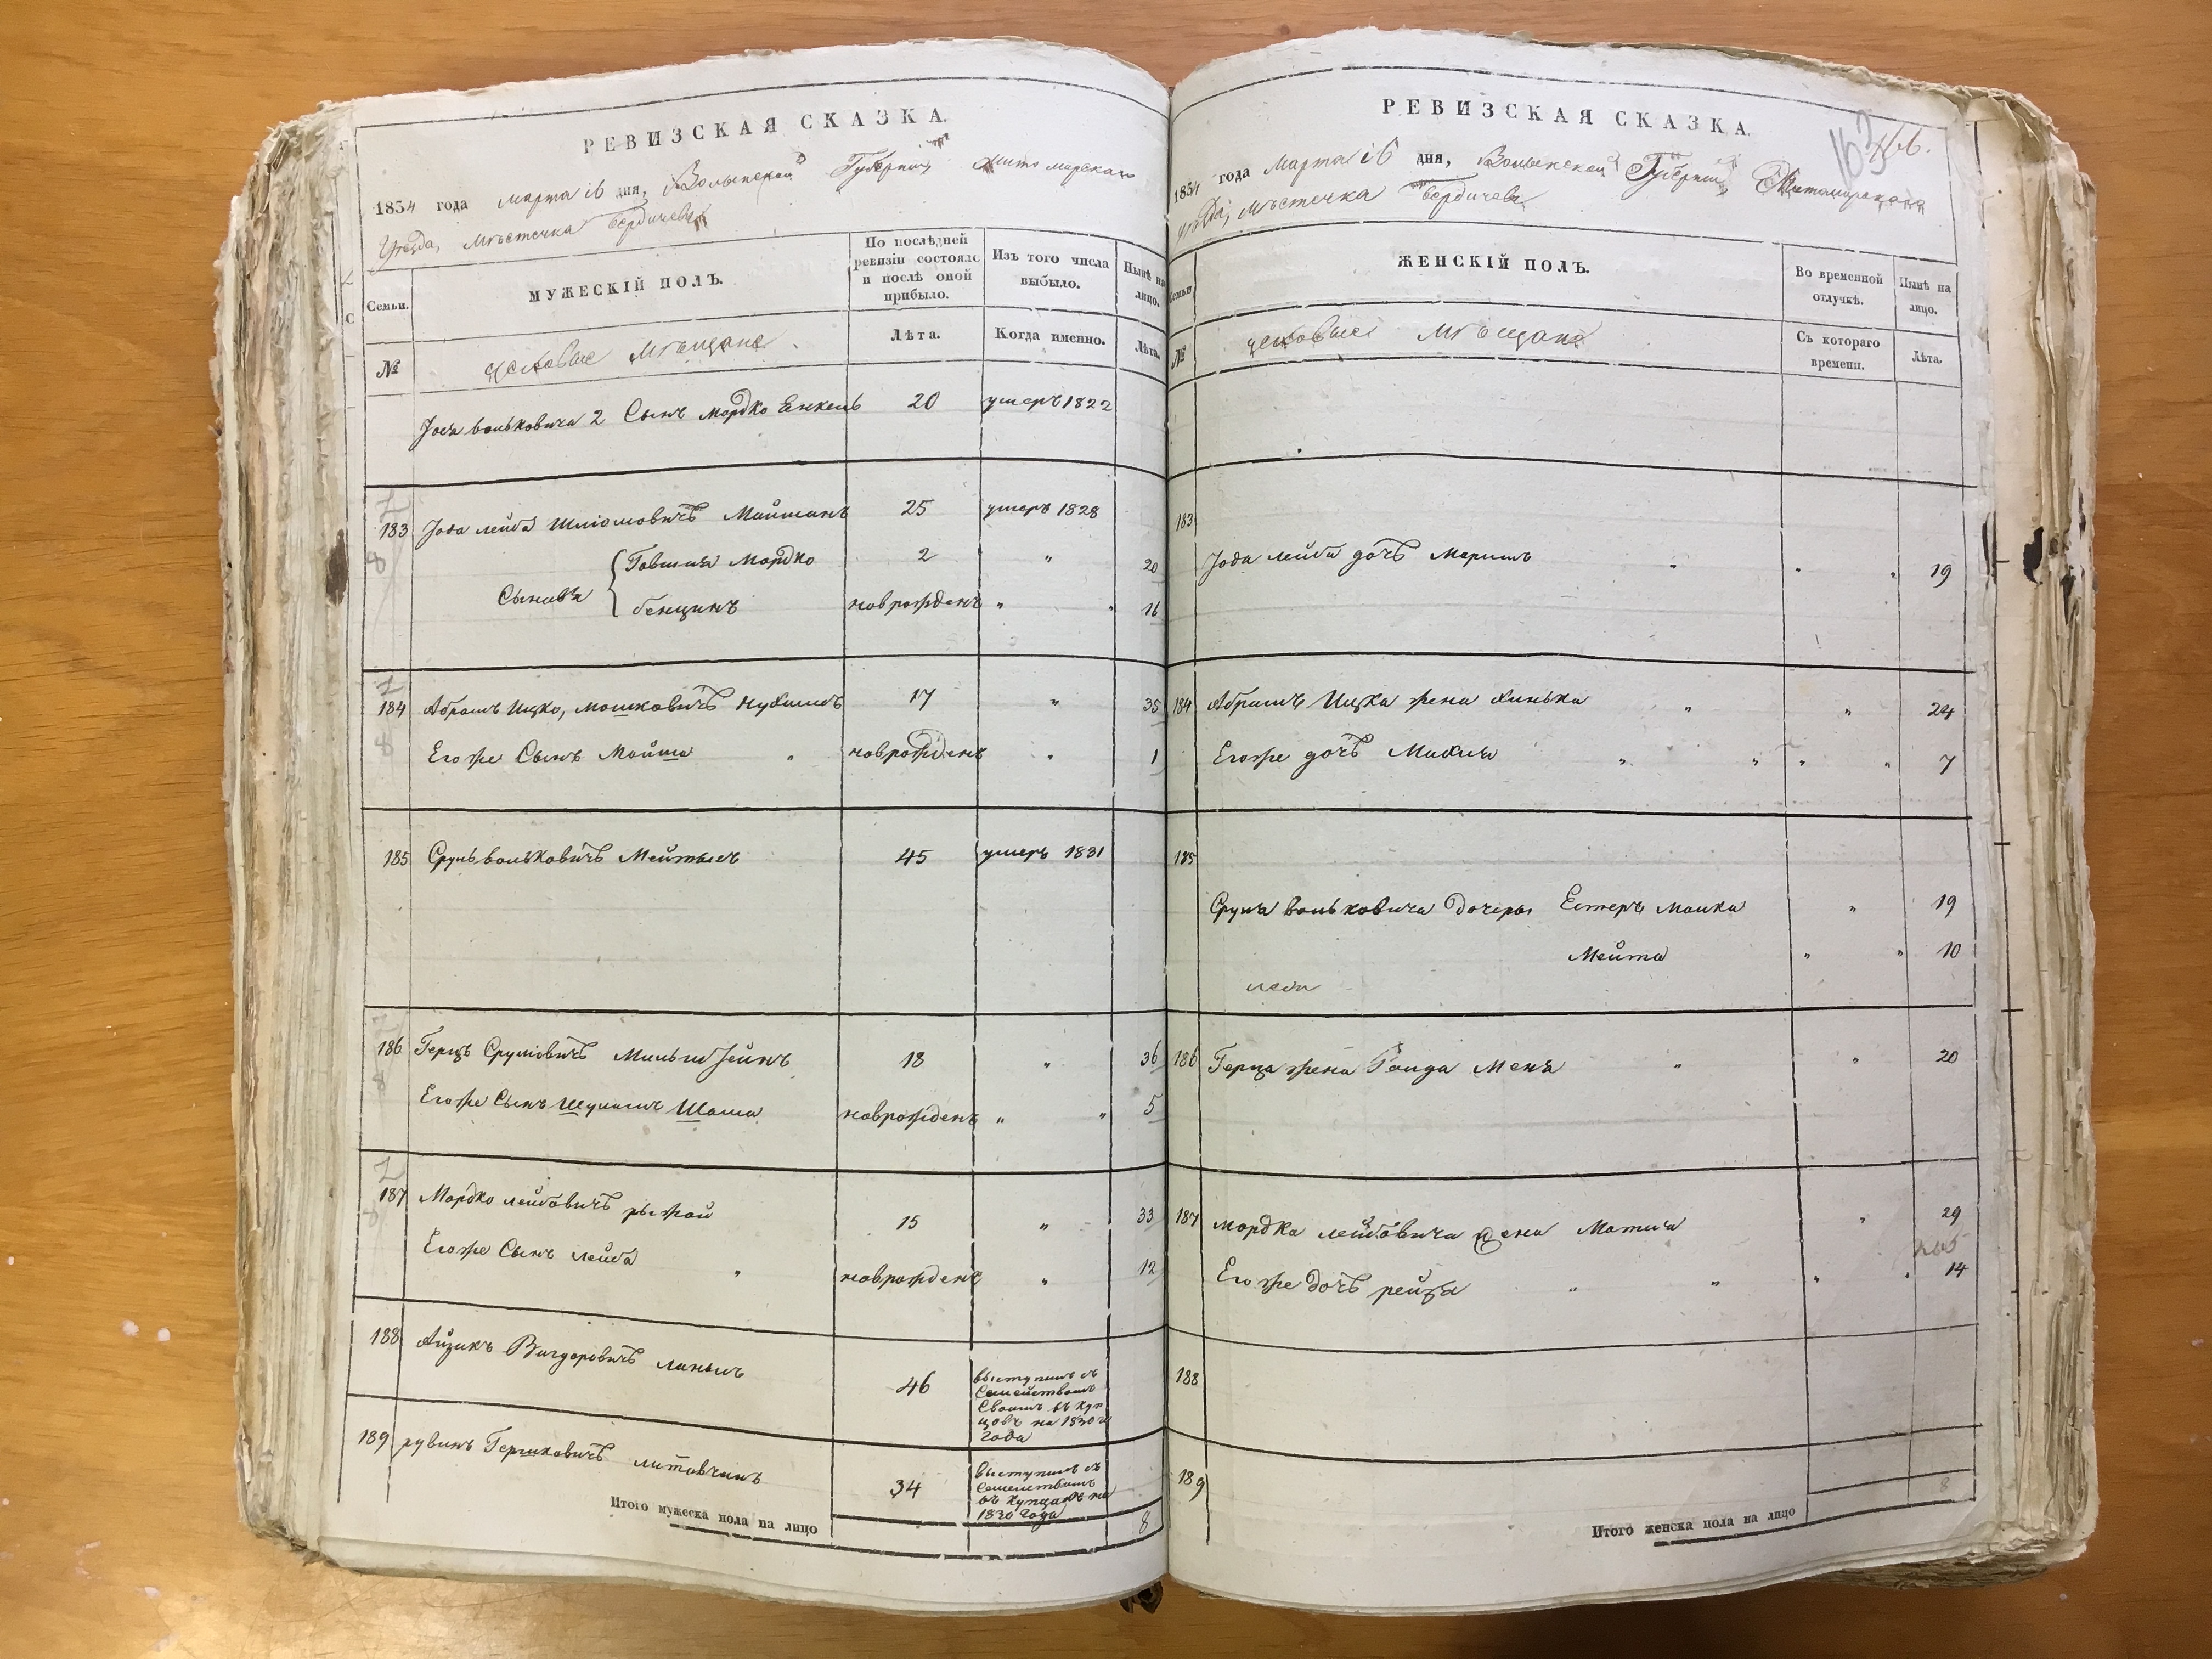 РЕВИЗСКАЯ СКАЗКА.
1834 года марта 16 дня, Волынской Губерніи Житомирскаго
Уѣзда, мѣстечка Бердичева
Семьи.
МУЖЕСКІЙ ПОЛЪ.
По послѣдней ревизіи состояло и послѣ оной прибыло.
Изъ того числа выбыло.
Нынѣ на лицо.
№
цеховые мѣщане
Лѣта.
Когда именно.
Лѣта.
Іося вольковича 2 Сынъ мордко Енкель 20 умеръ 1822
183 Іова лейба Шліомовичъ Майманъ 25 умеръ 1828
Сыновья Товшия Мордко 2 " 20
бенцинъ новрожденъ " " 16
184 Абрамъ Ицко, мошковичъ Нухимъ 17 " 35
Егоже Сынъ Мойша " новрожденъ " 1
185 Сруль вольковичъ Мейтысъ 45 умеръ 1831
186 Герцъ Сруліовичъ Мильштейнъ 18 " 36
Егоже Сынъ Шулимъ Шама новрожденъ " " 5
187 Мордко лейбовичъ рыжой 15 " 33
Егоже Сынъ лейба " новрожденъ " 12
188 Айзикъ Вигдоровичъ 46 выступилъ съ
Семействомъ
Своимъ въ Куп
цовъ на 1830
года
189 рувинъ Гершковичъ литовчинъ 34 выступилъ съ
Семействомъ
въ Купцовъ на
1830 года
Итого мужеска пола на лицо 8
РЕВИЗСКАЯ СКАЗКА.
163
1834 года Марта 16 дня, Волынской Губерніи Житомирскаго
уѣзда, мѣстечка Бердичева
Семьи
ЖЕНСКІЙ ПОЛЪ.
Во временной отлучкѣ.
Нынѣ на лицо.
№
цеховые мѣщане
Съ котораго времени.
Лѣта.
183
Іова лейба дочь Маримъ " " " 19
184 Абрамъ Ицка жена Хинька " " 24
Егоже дочь Махля " " " " 7
185
Срула вольковича дочери Естеръ малка " 19
Мейта " " 10
186 Герца жена Роида Меня " " 20
187 мордка лейбовича жена Матля " 29
Егоже дочь рейза " " " " 14
188
189
8
Итого женска пола на лицо